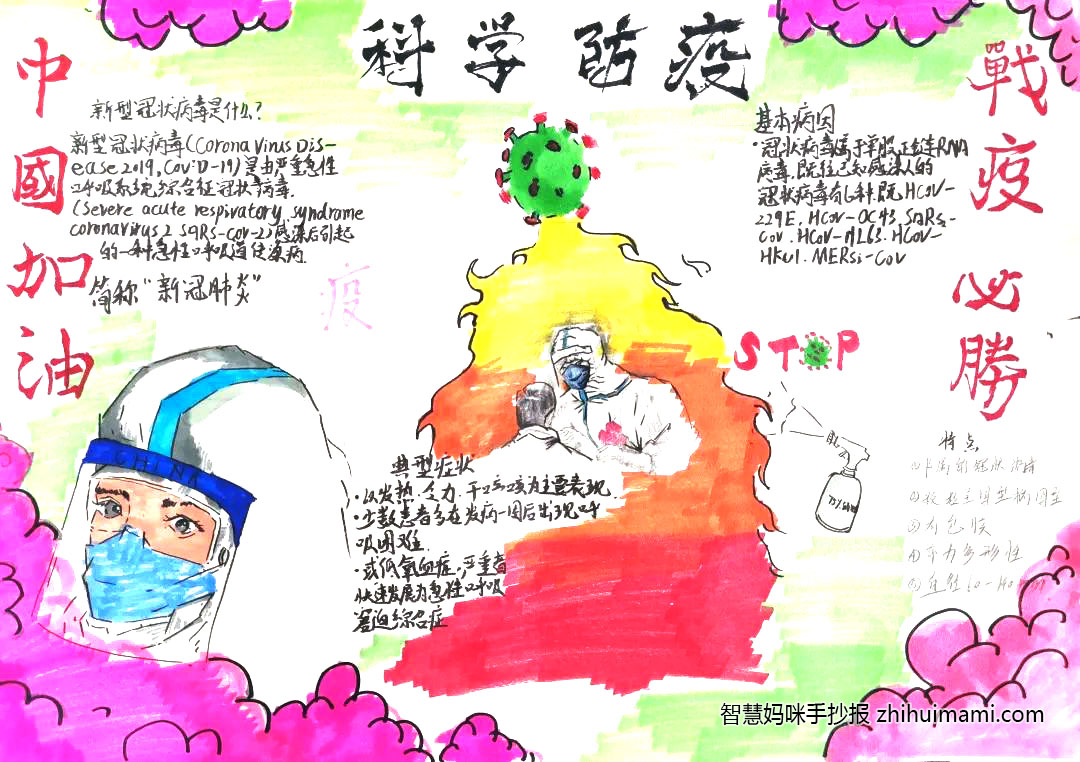 科学防疫
中國加油
戰疫必勝
新型冠状病毒是什么?
新型冠状病毒(Corona Virus Dis-
ease 2019, CoViD-19)是由严重急性
呼吸系统综合征冠状病毒.
(Severe acute respiratory syndrome
coronavirus 2 SARS-CoV-2)感染后引起
的一种急性呼吸道传染病.
简称“新冠肺炎”
疫
基本病因
·冠状病毒属于单股正链RNA
病毒.既往已知感染人的
冠状病毒有6种.既HCoV-
229E, HCoV-OC43, SARS-
CoV. HCoV-NL63. HCoV-
HKU1. MERSi-CoV
STOP
CHINA
75%
典型症状
·以发热.乏力.干咳为主要表现.
·少数患者多在发病一周后出现呼
吸困难.
·或低氧血症.严重者
快速发展为急性呼吸
窘迫综合症
特点
③有包膜
多形性
⑤直径60-140nm
智慧妈咪手抄报 zhihuimami.com